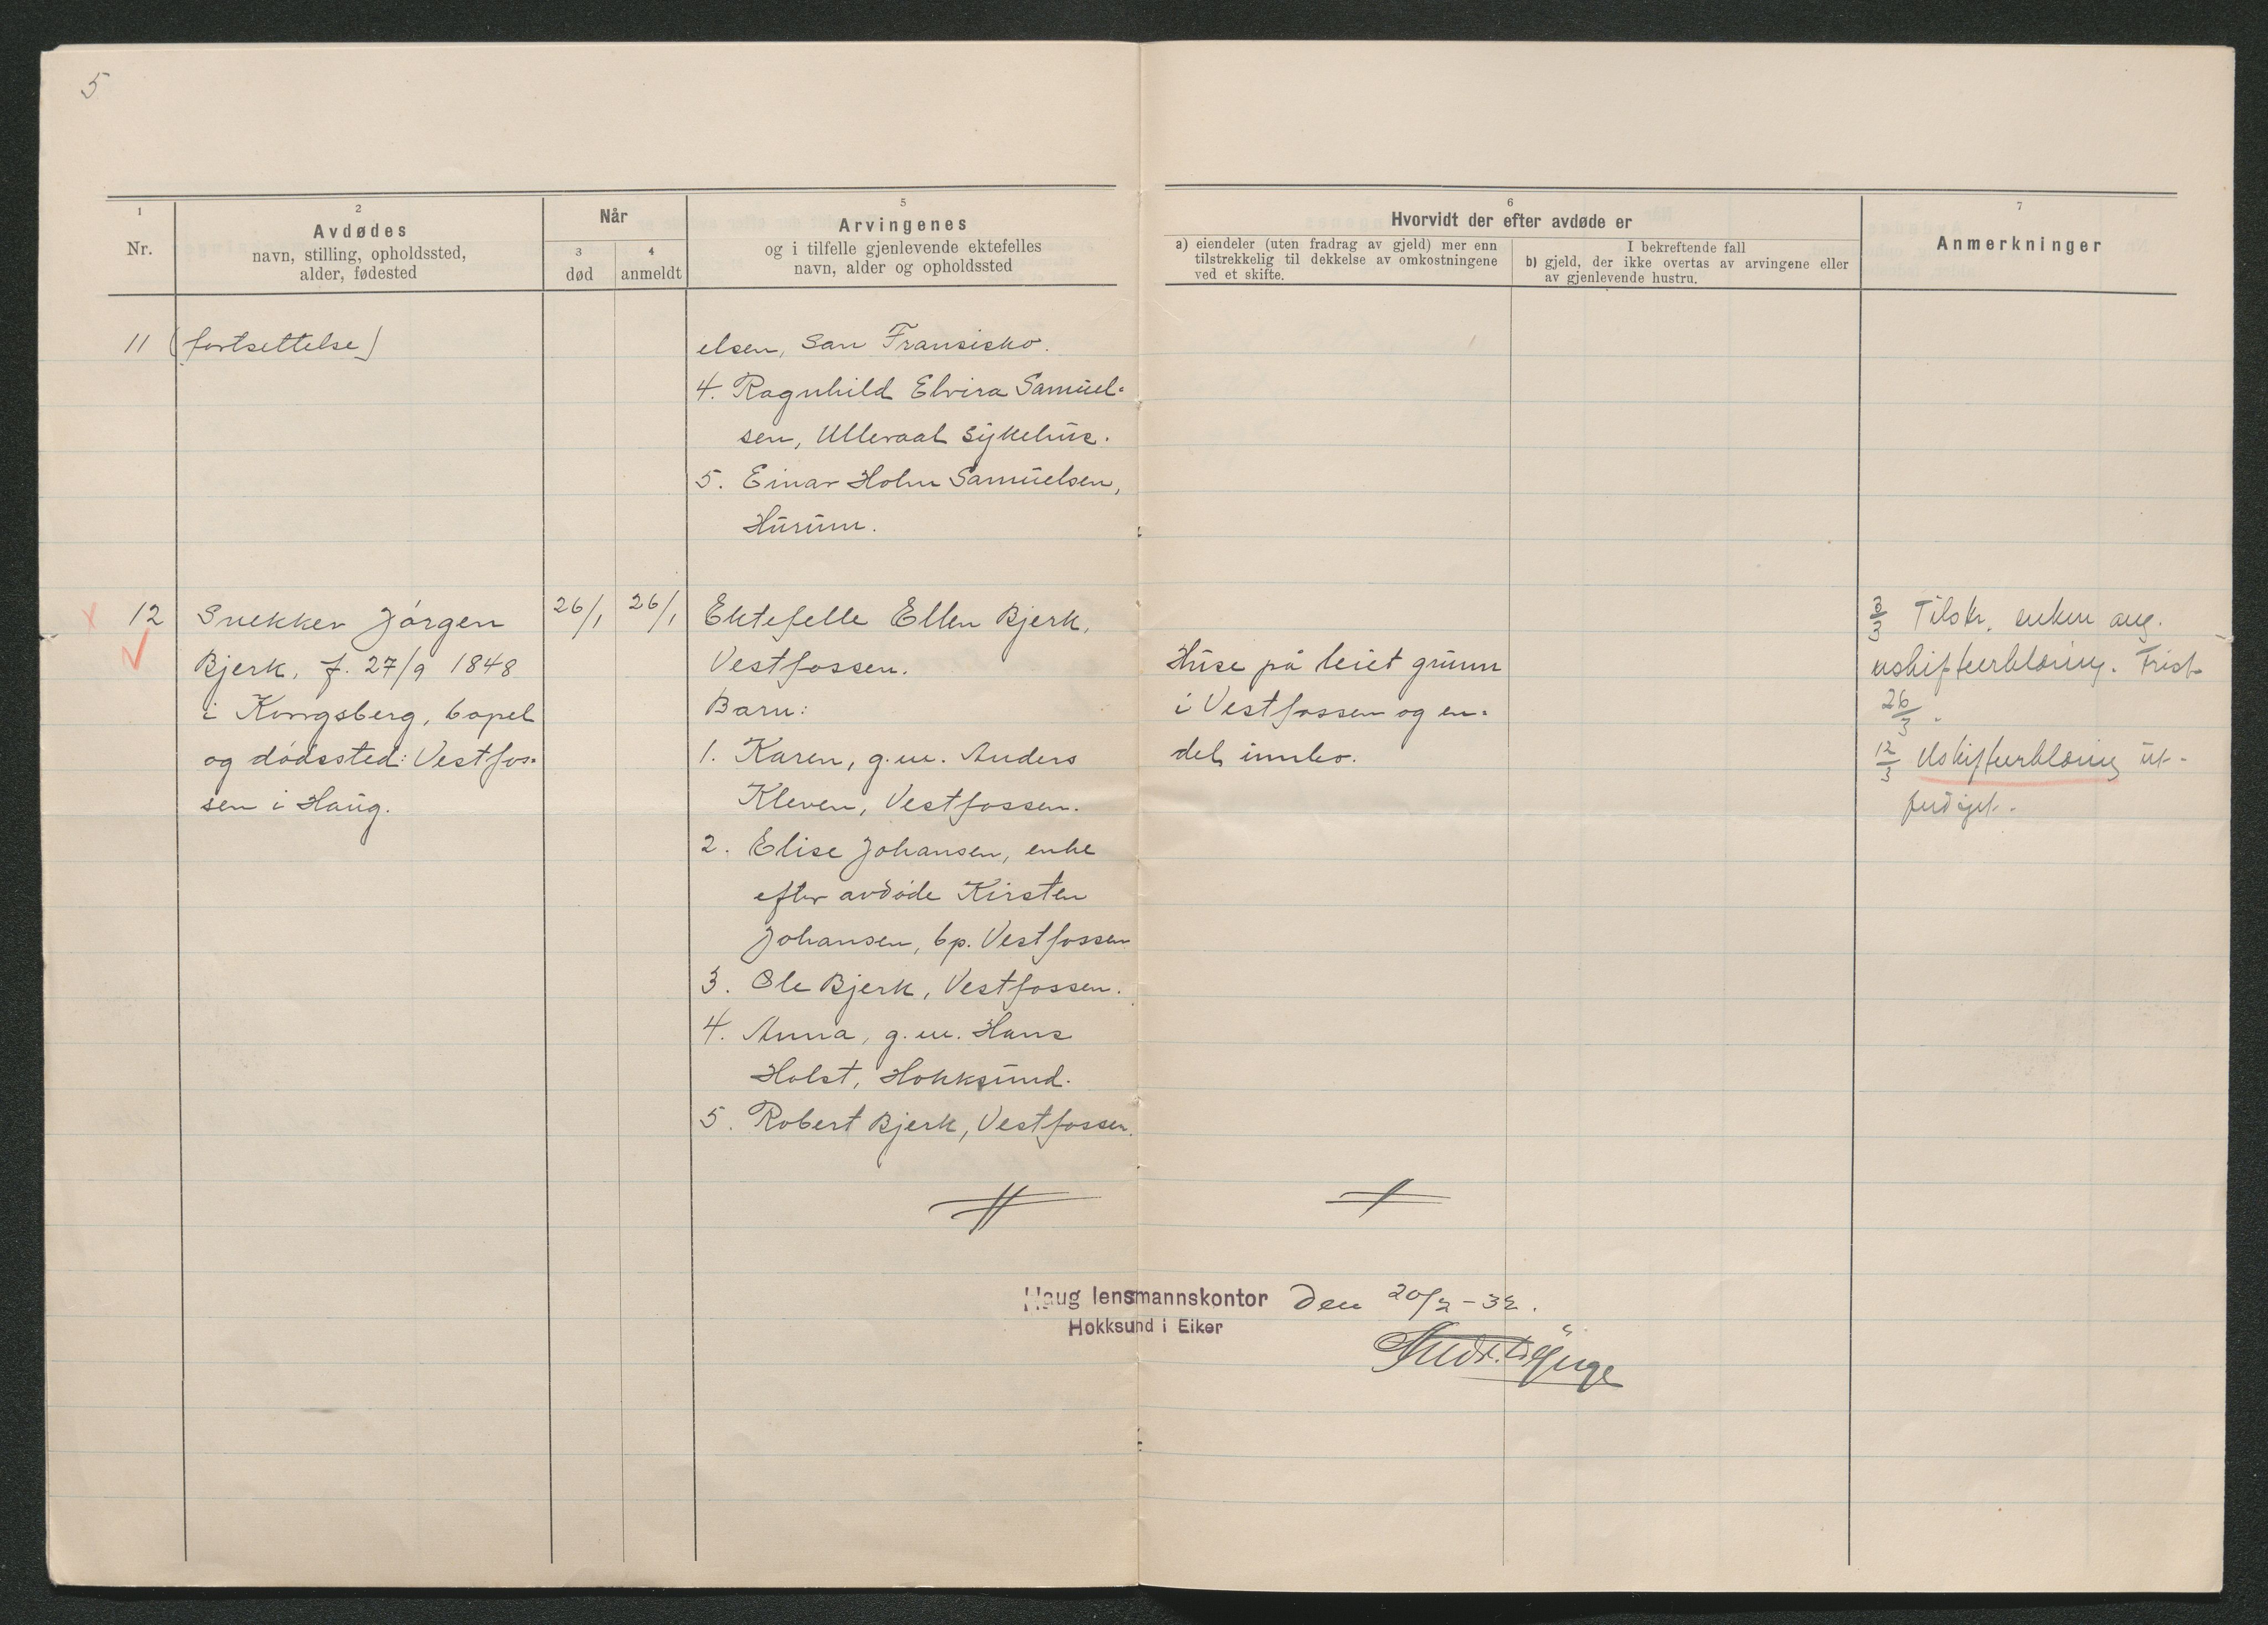 5
1
Nr.
2
Avdødes
navn, stilling, opholdssted,
alder, fødested
Når
3
død
4
anmeldt
5
Arvingenes
og i tilfelle gjenlevende ektefelles
navn, alder og opholdssted
6
Hvorvidt der efter avdøde er
a) eiendeler (uten fradrag av gjeld) mer enn
tilstrekkelig til dekkelse av omkostningene
ved et skifte.
I bekreftende fall
b) gjeld, der ikke overtas av arvingene eller
av gjenlevende hustru.
7
Anmerkninger
11 (fortsettelse)
elsen, San Fransisko.
4. Ragnhild Elvira Samuel-
sen, Ulleraal sykehus.
5. Einar Holm Samuelsen,
Hurum.
x 12
Snekker Jörgen
Bjerk, f. 27/9 1848
i Kongsberg, bopel
og dödssted: Vestfos-
sen i Haug.
26/1
26/1
Ektefelle Ellen Bjerk,
Vestfossen.
Barn:
1. Karen, g.m. Anders
Kleven, Vestfossen.
2. Elise Johansen, enke
efter avdöde Kirsten
Johansen, bp. Vestfossen
3. Ole Bjerk, Vestfossen.
4. Anna, g.m. Hans
Holst, Hokksund.
5. Robert Bjerk, Vestfossen.
Huse på leiet grunn
i Vestfossen og en-
del innbo.
3/3 Tilskr. enken ang.
uskifteerklæring. Frist
26/3.
12/3 Uskifteerklæring ut-
ferdiget.
Haug lensmannskontor Den 20/2-32.
Hokksund i Eiker